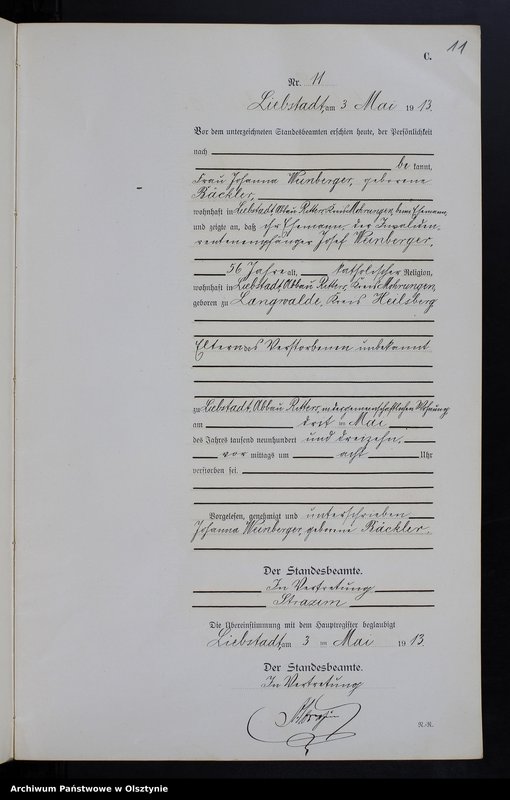 C.
11
Nr. 11
Liebstadt, am 3 Mai 1913.
Vor dem unterzeichneten Standesbeamten erschien heute, der Persönlichkeit
nach
be kannt,
Frau Johanna Weinberger, geborene
Bäckler,
wohnhaft in Liebstadt Abbau Ritters, Kreis Mohrungen, beim Ehemann,
und zeigte an, daß ihr Ehemann, der Invaliden,
rentenempfänger Josef Weinberger,
56 Jahre alt, katholischer Religion,
wohnhaft in Liebstadt Abbau Ritters, Kreis Mohrungen,
geboren zu Langwalde, Kreis Heilsberg
Eltern des Verstorbenen unbekannt
zu Liebstadt, Abbau Ritters, in der gemeinschaftlichen Wohnung
am drit en Mai
des Jahres tausend neunhundert und dreizehn,
vor mittags um acht Uhr
verstorben sei.
Vorgelesen, genehmigt und unterschrieben
Johanna Weinberger, geborene Bäckler.
Der Standesbeamte.
In Vertretung
Die Übereinstimmung mit dem Hauptregister beglaubigt
Liebstadt, am 3 ten Mai 1913.
Der Standesbeamte.
In Vertretung
R.-R.
Archiwum Państwowe w Olsztynie